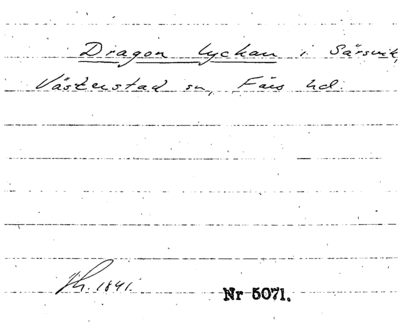 Dragon lyckan i Särsvik,
Västerstad sn, Färs hd.
Th. 1841.
Nr 5071.